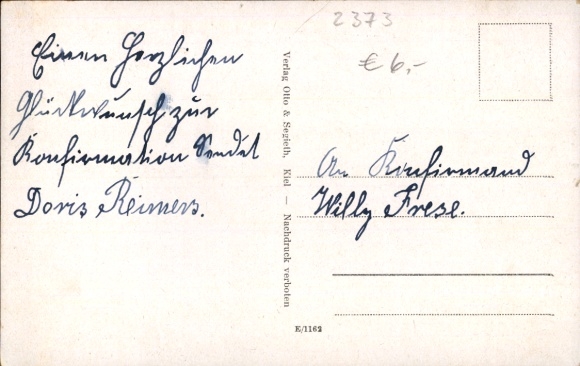 Einen Herzlichen
Glückwunsch zur
Konfirmation Sendet
Doris Reimers.
Verlag Otto & Segieth, Kiel — Nachdruck verboten
E/1162
2373
€ 6,-
An Konfirmand
Willy Frese.